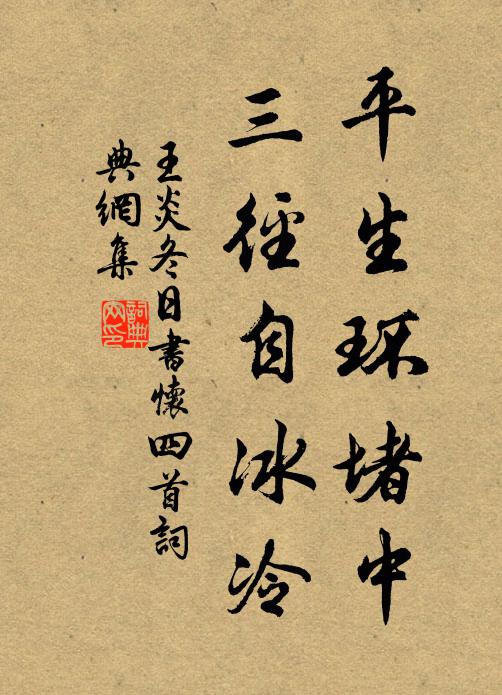 平生环堵中
三徑自冰冷
王炎冬日書懷四首詞
典網集
詞典網印